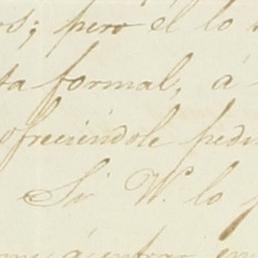 os; pero él lo
ta formal, á
ofreciéndole pedi
Sir W. lo p